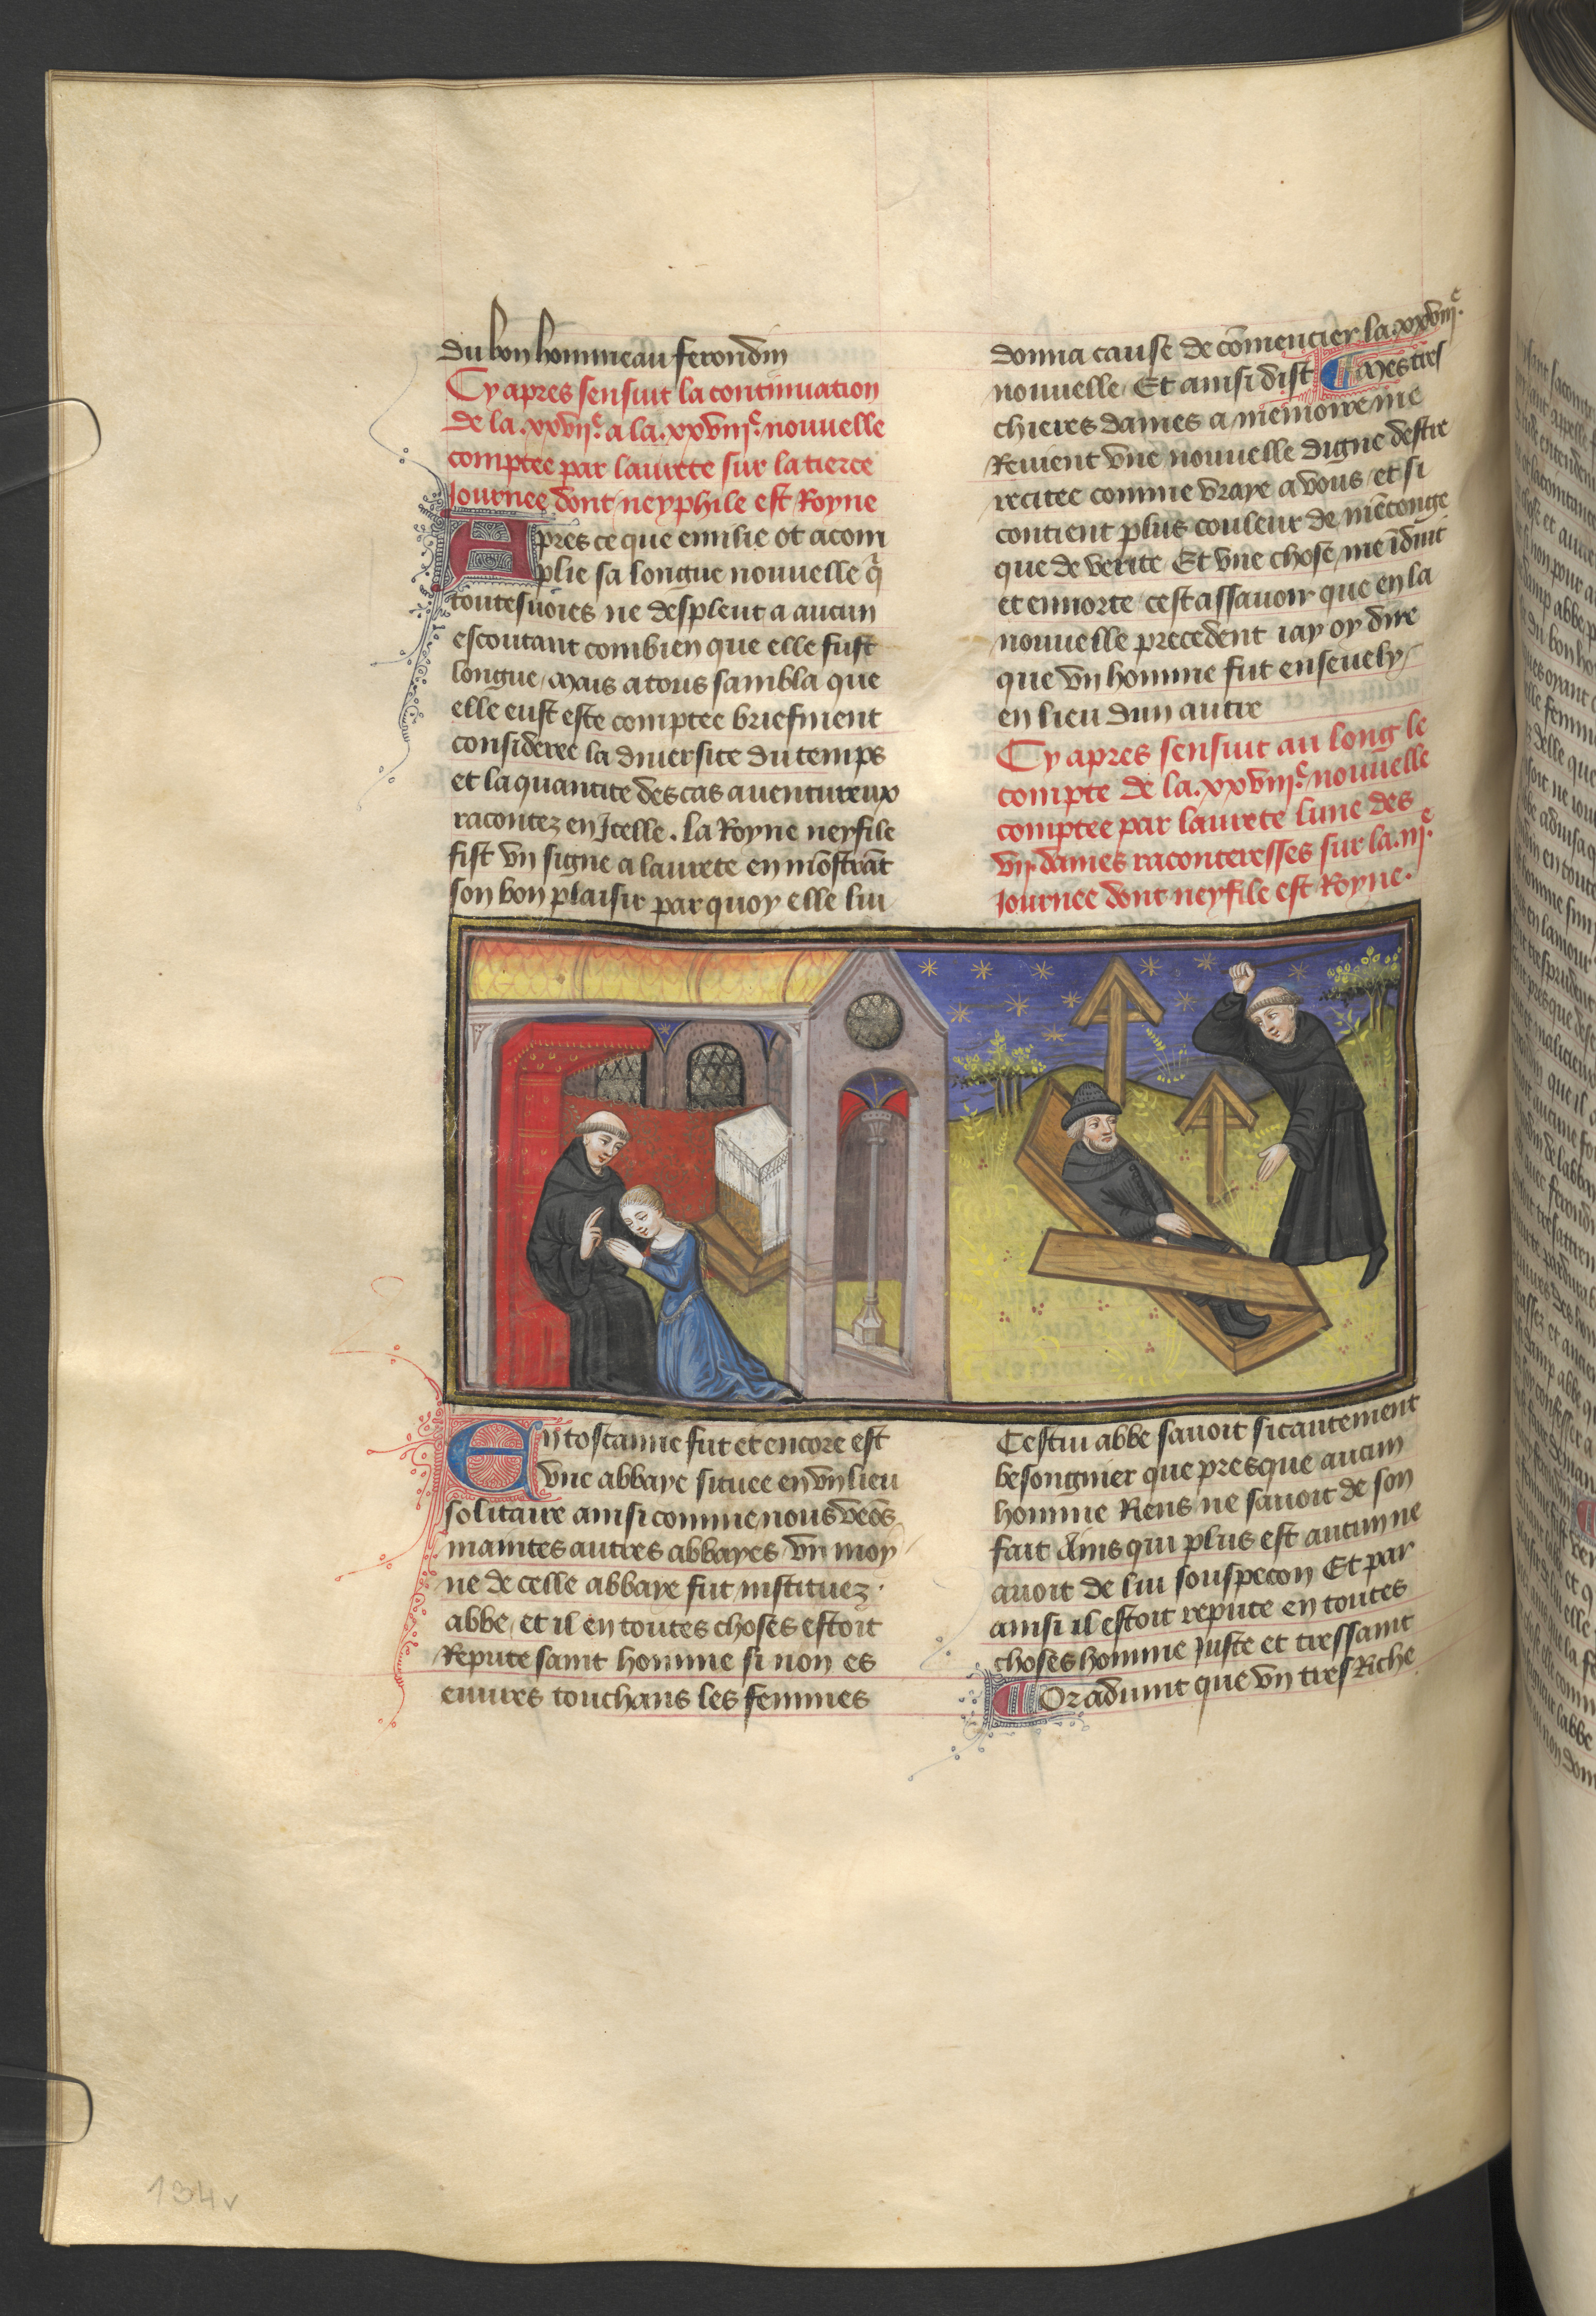 du bon hommeau ferondin
Cy apres sensuit la continuation
de la .xxvije. a la .xxviije. nouuelle
comptee par laurete sur la tierce
Journee dont neyphile est Royne
Apres ce que emilie ot acom
plie sa longue nouuelle q̄
toutesuoies ne despleut a aucun
escoutant combien que elle fust
longue / Mais a tous sambla que
elle eust este comptee briefment
consideree la diuersite du temps
et la quantite des cas auentureux
racontez en Jcelle . la Royne neyfile
fist vn signe a laurete en mōstrāt
son bon plaisir par quoy elle lui
donna cause de cōmencier la .xxviije.
nouuelle / Et ainsi dist Mes tres
chieres dames a memoire me
Reuient vne nouuelle digne destre
recitee comme vraye a vous / et si
contient plus couleur de mēconge
que de verite Et vne chose me īduit
et ennorte cest assauoir que en la
nouuelle precedent iay oy dire
que vn homme fut enseuely /
en lieu dun autre
Cy apres sensuit au long le
compte de la .xxviije. nouuelle
comptee par laurete lune des
vij. dames raconteresses sur la .iije.
Journee dont neyfile est Royne .
En toscanne fut et encore est
vne abbaye situee en vn lieu
solitaire ainsi comme nous veōs
maintes autres abbayes / vn moy
ne de celle abbaye fut instituez .
abbe / et il en toutes choses estoit
Repute saint homme si non es
euures touchans les femmes
Cestui abbe sauoit si cautement
besongnier que presque aucun
homme Riens ne sauoit de son
fait Ains qui plus est aucun ne
auoit de lui souspecon Et par
ainsi il estoit repute en toutes
choses homme Juste et tressaint
Or aduint que vn tres Riche
134v